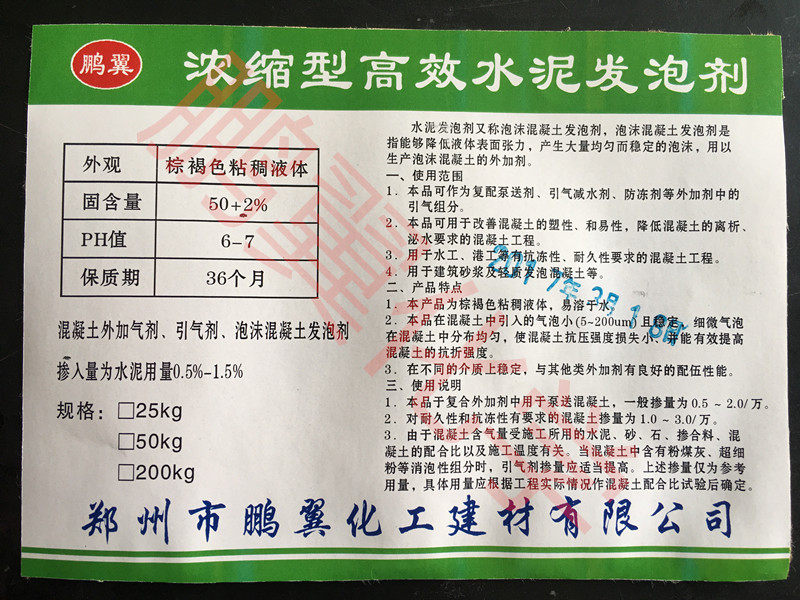 鹏翼
浓缩型高效水泥发泡剂
外观 棕褐色粘稠液体
固含量 50+2%
PH值 6-7
保质期 36个月
混凝土外加气剂、引气剂、泡沫混凝土发泡剂
掺入量为水泥用量0.5%-1.5%
规格：□25kg
□50kg
□200kg
水泥发泡剂又称泡沫混凝土发泡剂，泡沫混凝土发泡剂是
指能够降低液体表面张力，产生大量均匀而稳定的泡沫，用以
生产泡沫混凝土的外加剂。
一、使用范围
1．本品可作为复配泵送剂、引气减水剂、防冻剂等外加剂中的
引气组分。
2．本品可用于改善混凝土的塑性、和易性，降低混凝土的离析、
泌水要求的混凝土工程。
3．用于水工、港工等有抗冻性、耐久性要求的混凝土工程。
4．用于建筑砂浆及轻质发泡混凝土等。
二、产品特点
1．本产品为棕褐色粘稠液体，易溶于水。
2．本品在混凝土中引入的气泡小(5~200um)且稳定，细微气泡
在混凝土中分布均匀，使混凝土抗压强度损失小，并能有效提高
混凝土的抗折强度。
3．在不同的介质上稳定，与其他类外加剂有良好的配伍性能。
三、使用说明
1．本品于复合外加剂中用于泵送混凝土，一般掺量为0.5～2.0/万。
2．对耐久性和抗冻性有要求的混凝土掺量为1.0～3.0/万。
3．由于混凝土含气量受施工所用的水泥、砂、石、掺合料、混
凝土的配合比以及施工温度有关。当混凝土中含有粉煤灰、超细
粉等消泡性组分时，引气剂掺量应适当提高。上述掺量仅为参考
用量，具体用量应根据工程实际情况作混凝土配合比试验后确定。
郑州市鹏翼化工建材有限公司